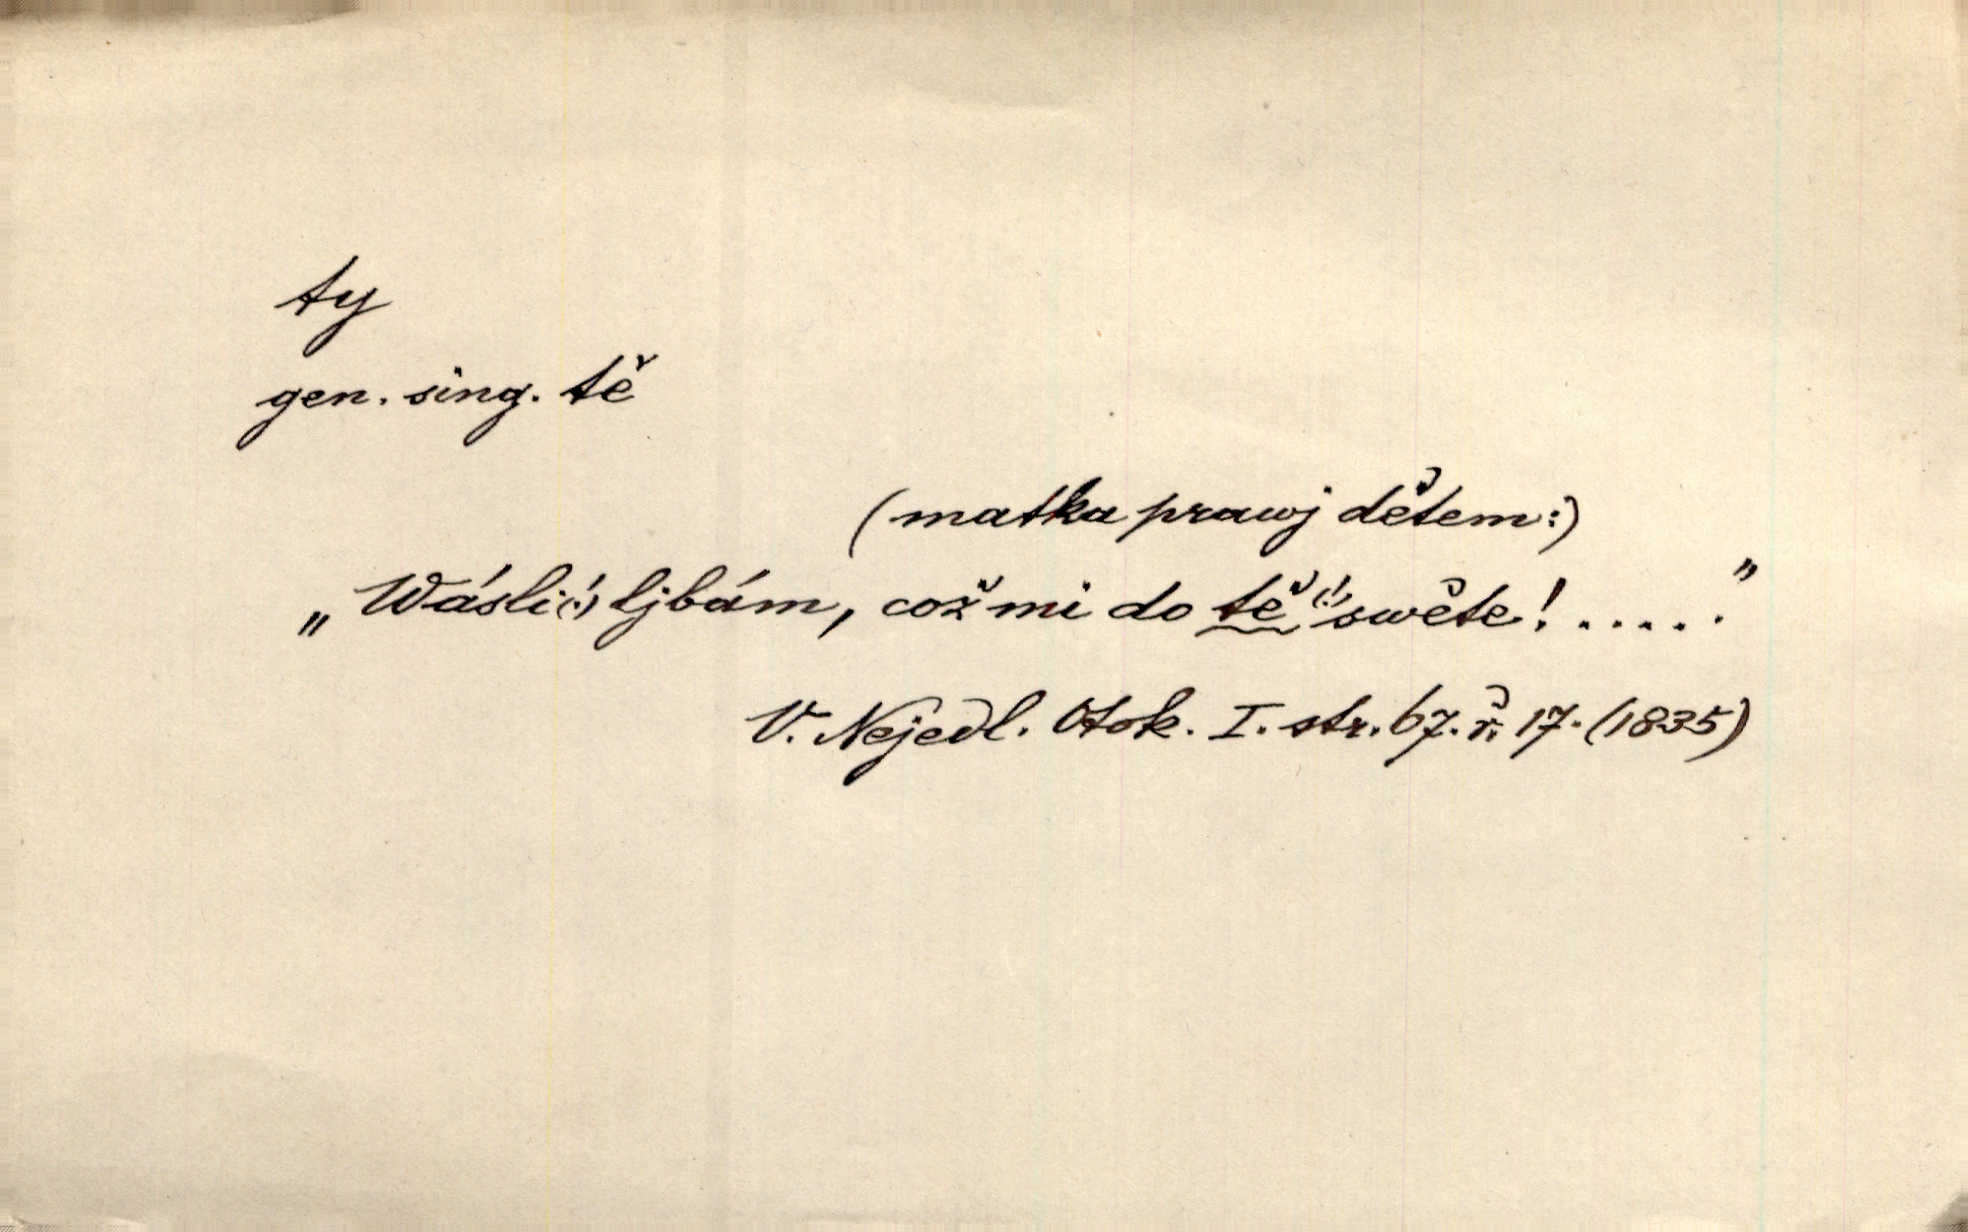 ty
gen. sing. tě
(matka prawj dětem:)
„Wásli(!) ljbám, což mi do tě(!) swěte!....."
V. Nejedl. Otok. I. str. 67. ř. 17. (1835)